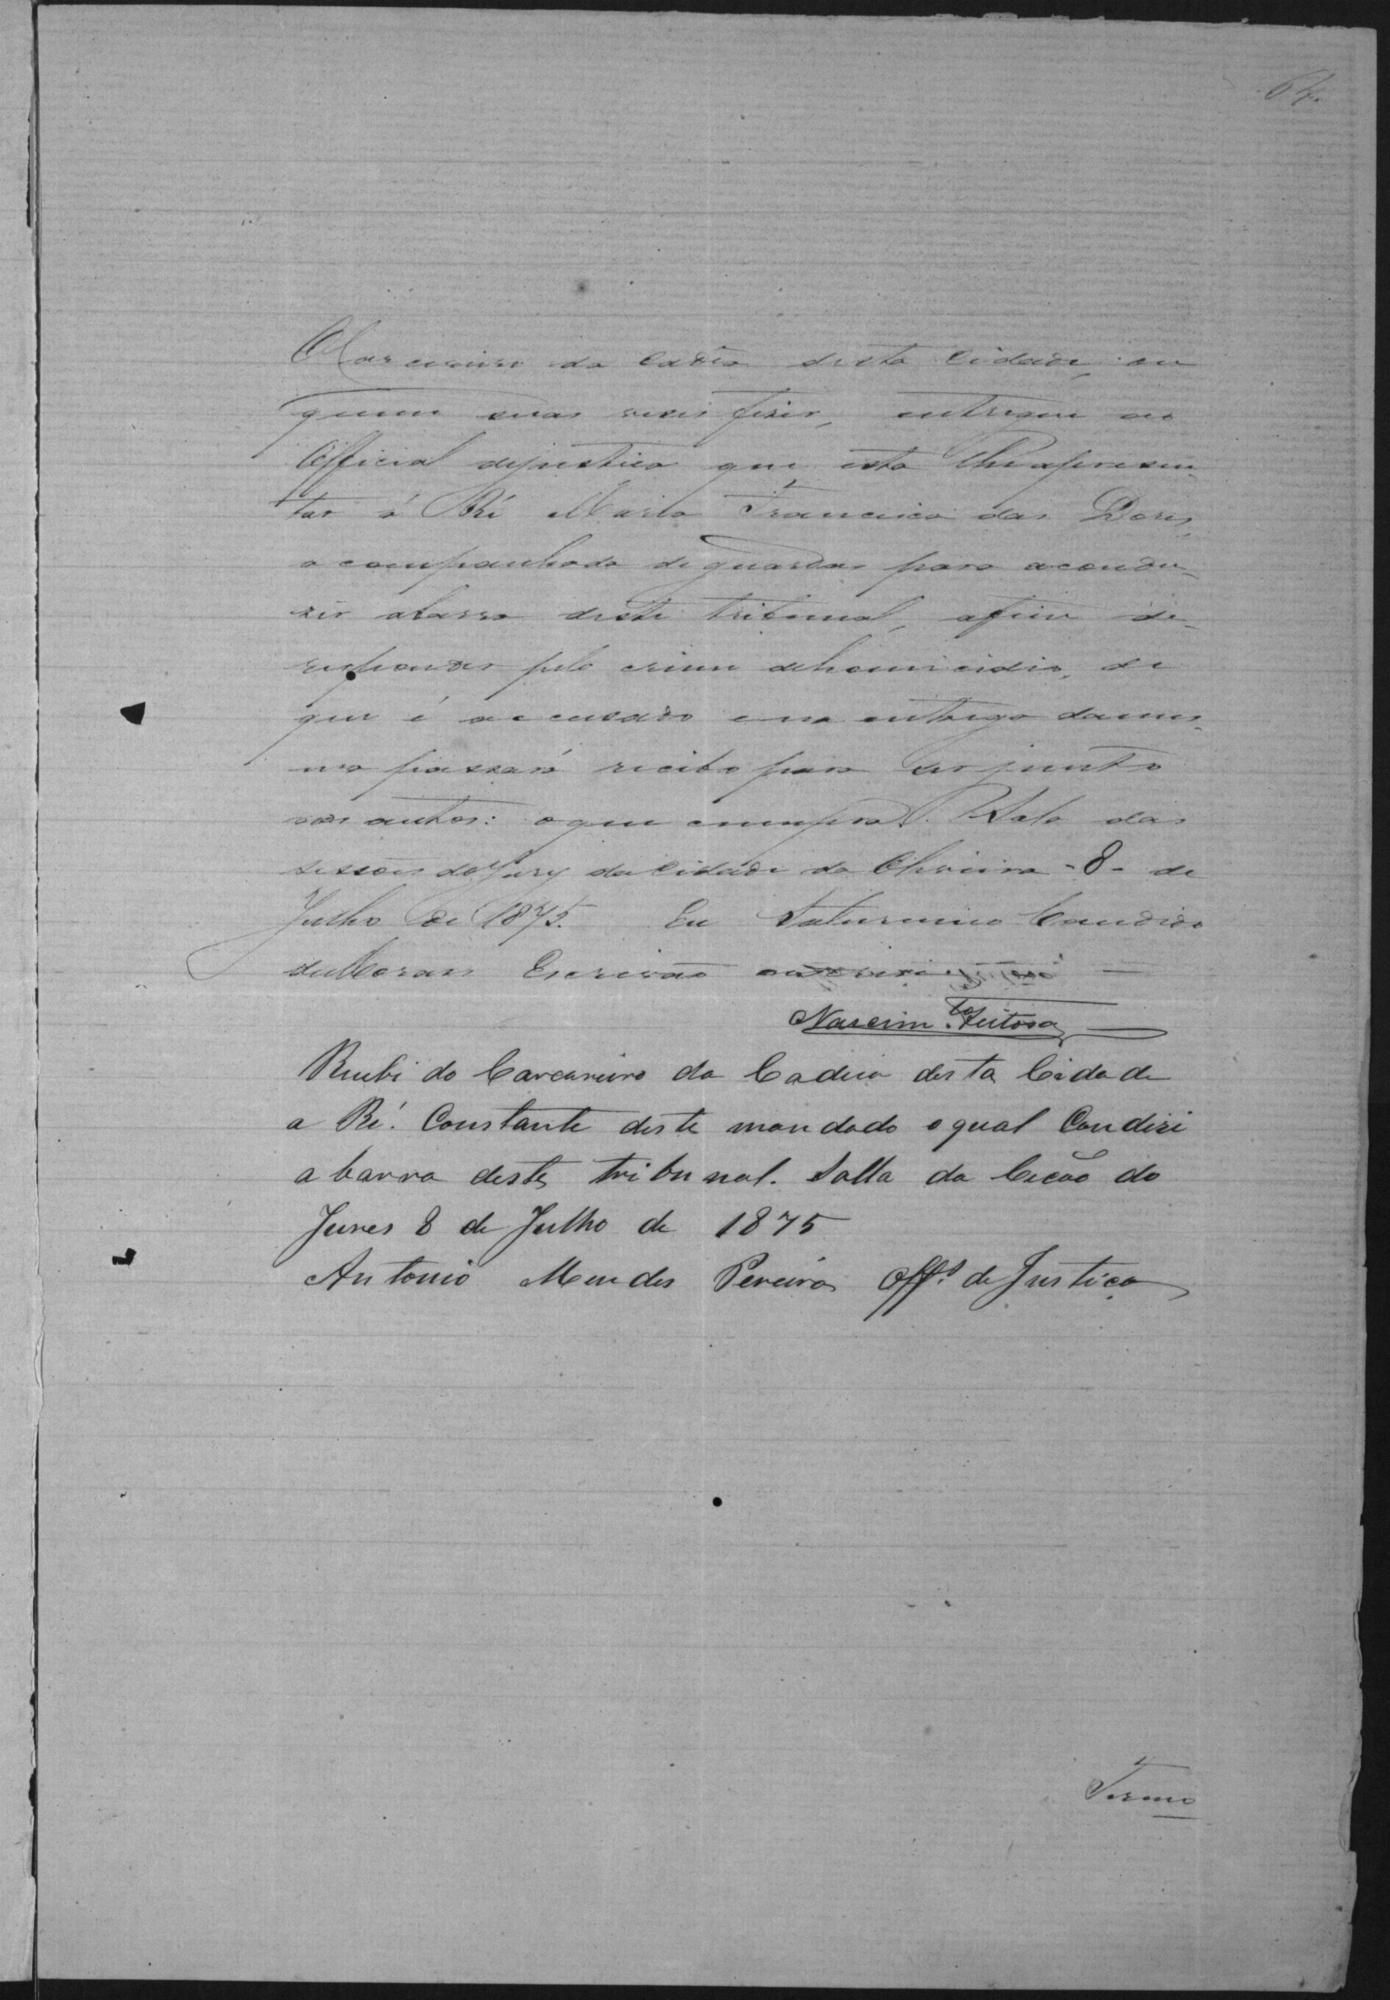 64.
O Carcereiro da Cadêa desta Cidade, ou
quem suas vezes fizer, entregue ao
Official dejustica que esta lheapresen-
tar á Ré Maria Francisca das Dores,
acompanhada deguardas para acondu-
zir abarra deste tribunal, afim de
responder pelo crime dehomicidio, de
que é accusada e na entrega dames-
ma passará recibo para ser junto
aos autos: oque cumpra. Sala das
sessões doJury daCidade da -8- de
Julho de 1875. Eu Saturnino Candido
deMoraes Escrivão
Nascim.to Feitosa
Recebi do Carcereiro da Cadeia desta Cidade
a Ré. Constante deste mandado oqual Condizi
abarra deste tribunal. Salla da Cecão do
Jures 8 de Julho de 1875
Antonio Mendes Pereira Off.al de Justica
Termo